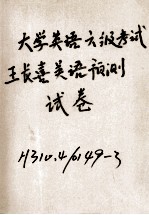 大学英语六级考试
王长喜英语预测
试卷
H310.4/6149-3